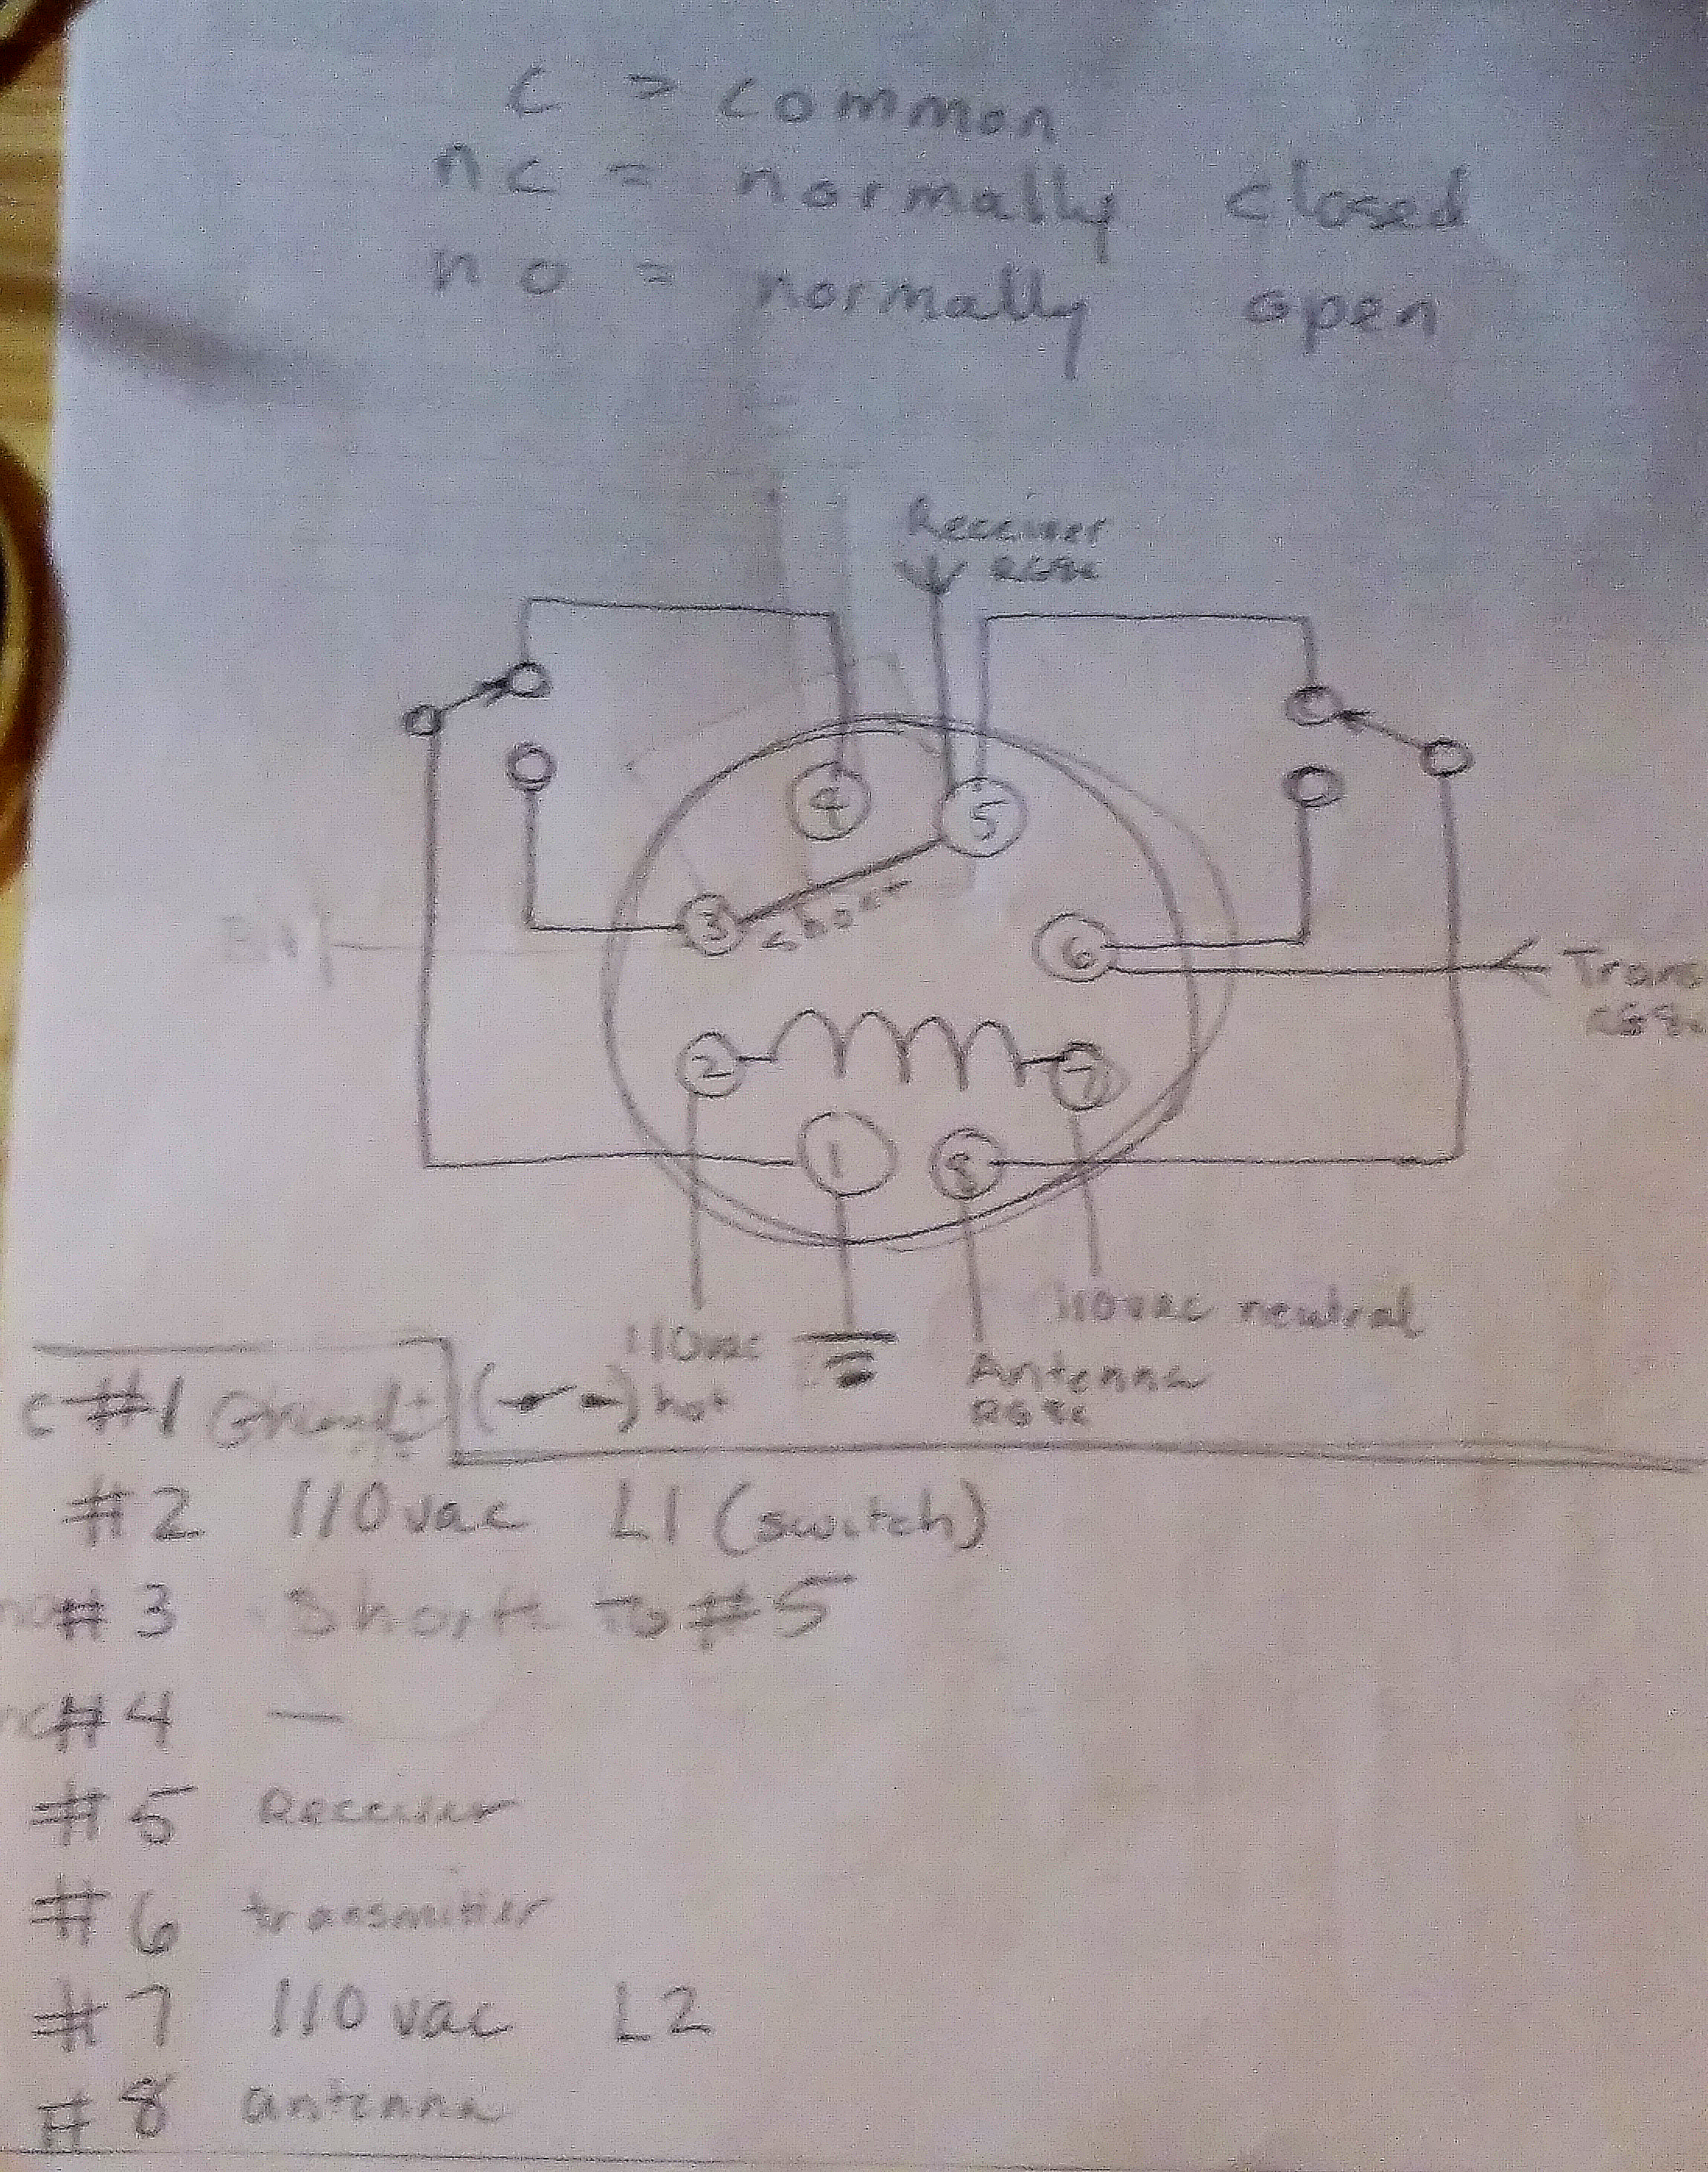 c > common
nc = normally closed
no = normally open
Receiver
RG8x
4
5
3
short
6
Trans
RG8x
2
7
1
8
110vac
hot
110vac neutral
Antenna
RG8x
c #1 Ground
#2 110vac L1 (switch)
no #3 Shorts to #5
nc #4 —
#5 Receiver
#6 transmitter
#7 110 vac L2
#8 antenna